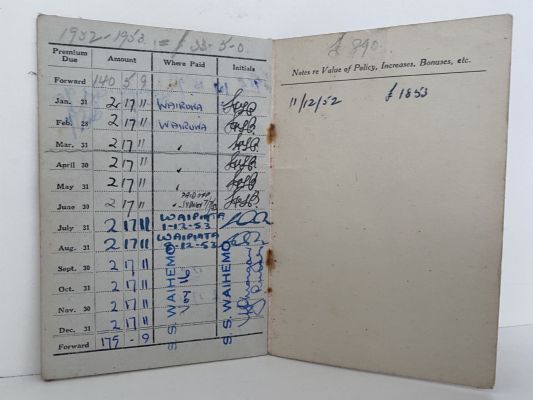 1952-1953 = £ 33-5-0.
Premium Due Amount Where Paid Initials
Forward 140 5 9
Jan. 31 2 17 11 WAIRUNA
Feb. 28 2 17 11 WAIRUNA
Mar. 31 2 17 11 "
April 30 2 17 11 "
May 31 2 17 11 "
June 30 2 17 11
July 31 2 17 11 WAIPIATA 1-12-53
Aug. 31 2 17 11 WAIPIATA 8-12-53
Sept. 30 2 17 11
Oct. 31 2 17 11
Nov. 30 2 17 11
Dec. 31 2 17 11
Forward 175 - 9
S.S. WAIHEMO
S.S. WAIHEMO
£ 890.
Notes re Value of Policy, Increases, Bonuses, etc.
11/12/52 £ 1853